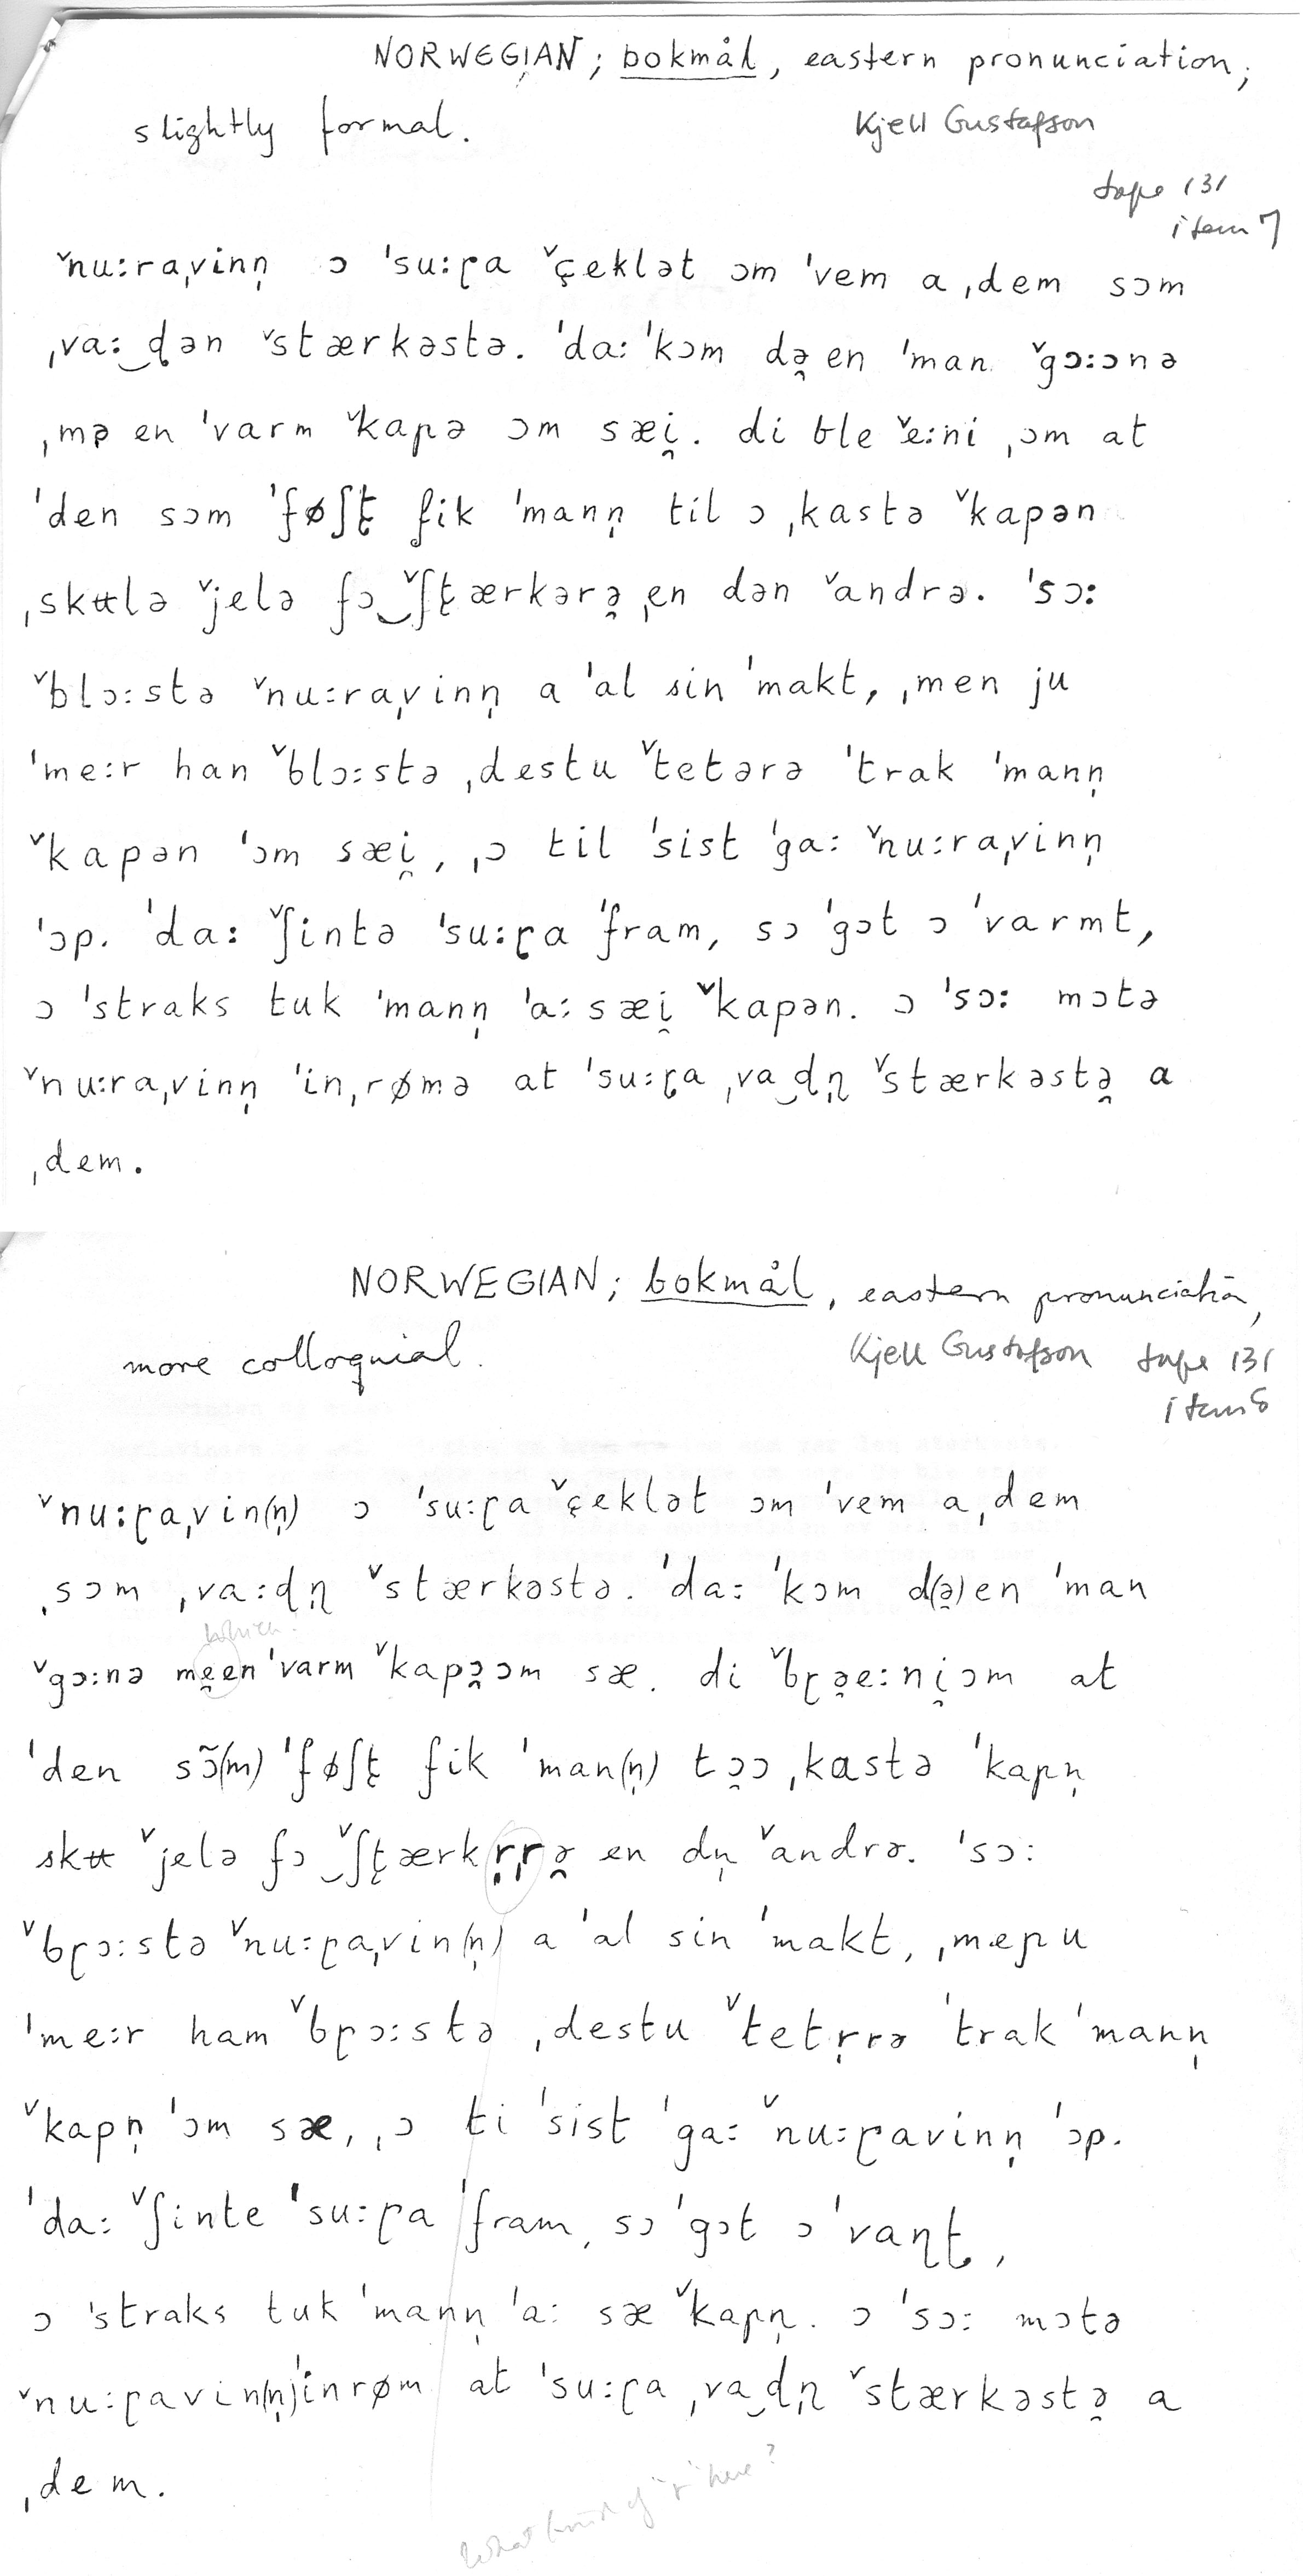 NORWEGIAN; bokmål, eastern pronunciation,
slightly formal.
Kjell Gustafson
tape 131
item 7
ˇnu:raˌvinn̩ ɔ ˈsu:ɽa ˇçeklət ɔm ˈvem a ˌdem sɔm
ˌva:‿ɖən ˇstærkəstə. ˈda: ˈkɔm də̯ en ˈman ˇgɔ:ɔnə
ˌmə en ˈvarm ˇkapə ɔm sæi̯. di ble ˇe:ni ˌɔm at
ˈden sɔm ˈføʃʈ fik ˈmann̩ til ɔ ˌkastə ˇkapən
ˌskʉlə ˇjelə fɔ‿ˇʃʈærkərə̯ ˌen dən ˇandrə. ˈsɔ:
ˇblɔ:stə ˇnu:raˌvinn̩ a ˈal sin ˈmakt, ˌmen ju
ˈme:r han ˇblɔ:stə ˌdestu ˇtetərə ˈtrak ˈmann̩
ˇkapən ˈɔm sæi̯, ˌɔ til ˈsist ˈga: ˇnu:raˌvinn̩
ˈɔp. ˈda: ˇʃintə ˈsu:ɽa ˈfram, sɔ ˈgɔt ɔ ˈvarmt,
ɔ ˈstraks tuk ˈmann̩ ˈa: sæi̯ ˇkapən. ɔ ˈsɔ: mɔtə
ˇnu:raˌvinn̩ ˈinˌrømə at ˈsu:ɽa ˌva‿ɖɳ̩ ˇstærkəstə̯ a
ˌdem.
NORWEGIAN; bokmål, eastern pronunciation,
more colloquial.
Kjell Gustafson tape 131
item 8
ˇnu:ɽaˌvin(n̩) ɔ ˈsu:ɽa ˇçeklət ɔm ˈvem aˌdem
ˌsɔm ˌva:ɖɳ̩ ˇstærkəstə. ˈda: ˈkɔm d(ə̯)en ˈman
which?
ˇgɔ:nə me̯en ˈvarm ˇkapə̯ɔm sæ. di ˇbɽə̯e:ni̯ɔm at
ˈden sɔ̃(m) ˈføʃʈ fik ˈman(n̩) tə̯ɔ ˌkastə ˈkapn̩
skʉ ˇjelə fɔ‿ˇʃʈærkr̩rə̯ en dn̩ ˇandrə. ˈsɔ:
ˇbɽɔ:stə ˇnu:ɽaˌvin(n̩) a ˈal sin ˈmakt, ˌmeɲu
ˈme:r ham ˇbɽɔ:stə ˌdestu ˇtetr̩rə ˈtrak ˈmann̩
ˇkapn̩ ˈɔm sæ, ˌɔ ti ˈsist ˈga: ˇnu:ɽavinn̩ ˈɔp.
ˈda: ˇʃinte ˈsu:ɽa ˈfram, sɔ ˈgɔt ɔ ˈvaɳʈ,
ɔ ˈstraks tuk ˈmann̩ ˈa: sæ ˇkapn̩. ɔ ˈsɔ: mɔtə
ˇnu:ɽavin(n̩)ˈinrøm at ˈsu:ɽa ˌva‿ɖɳ̩ ˇstærkəstə̯ a
ˌdem.
What kind of "r" here?